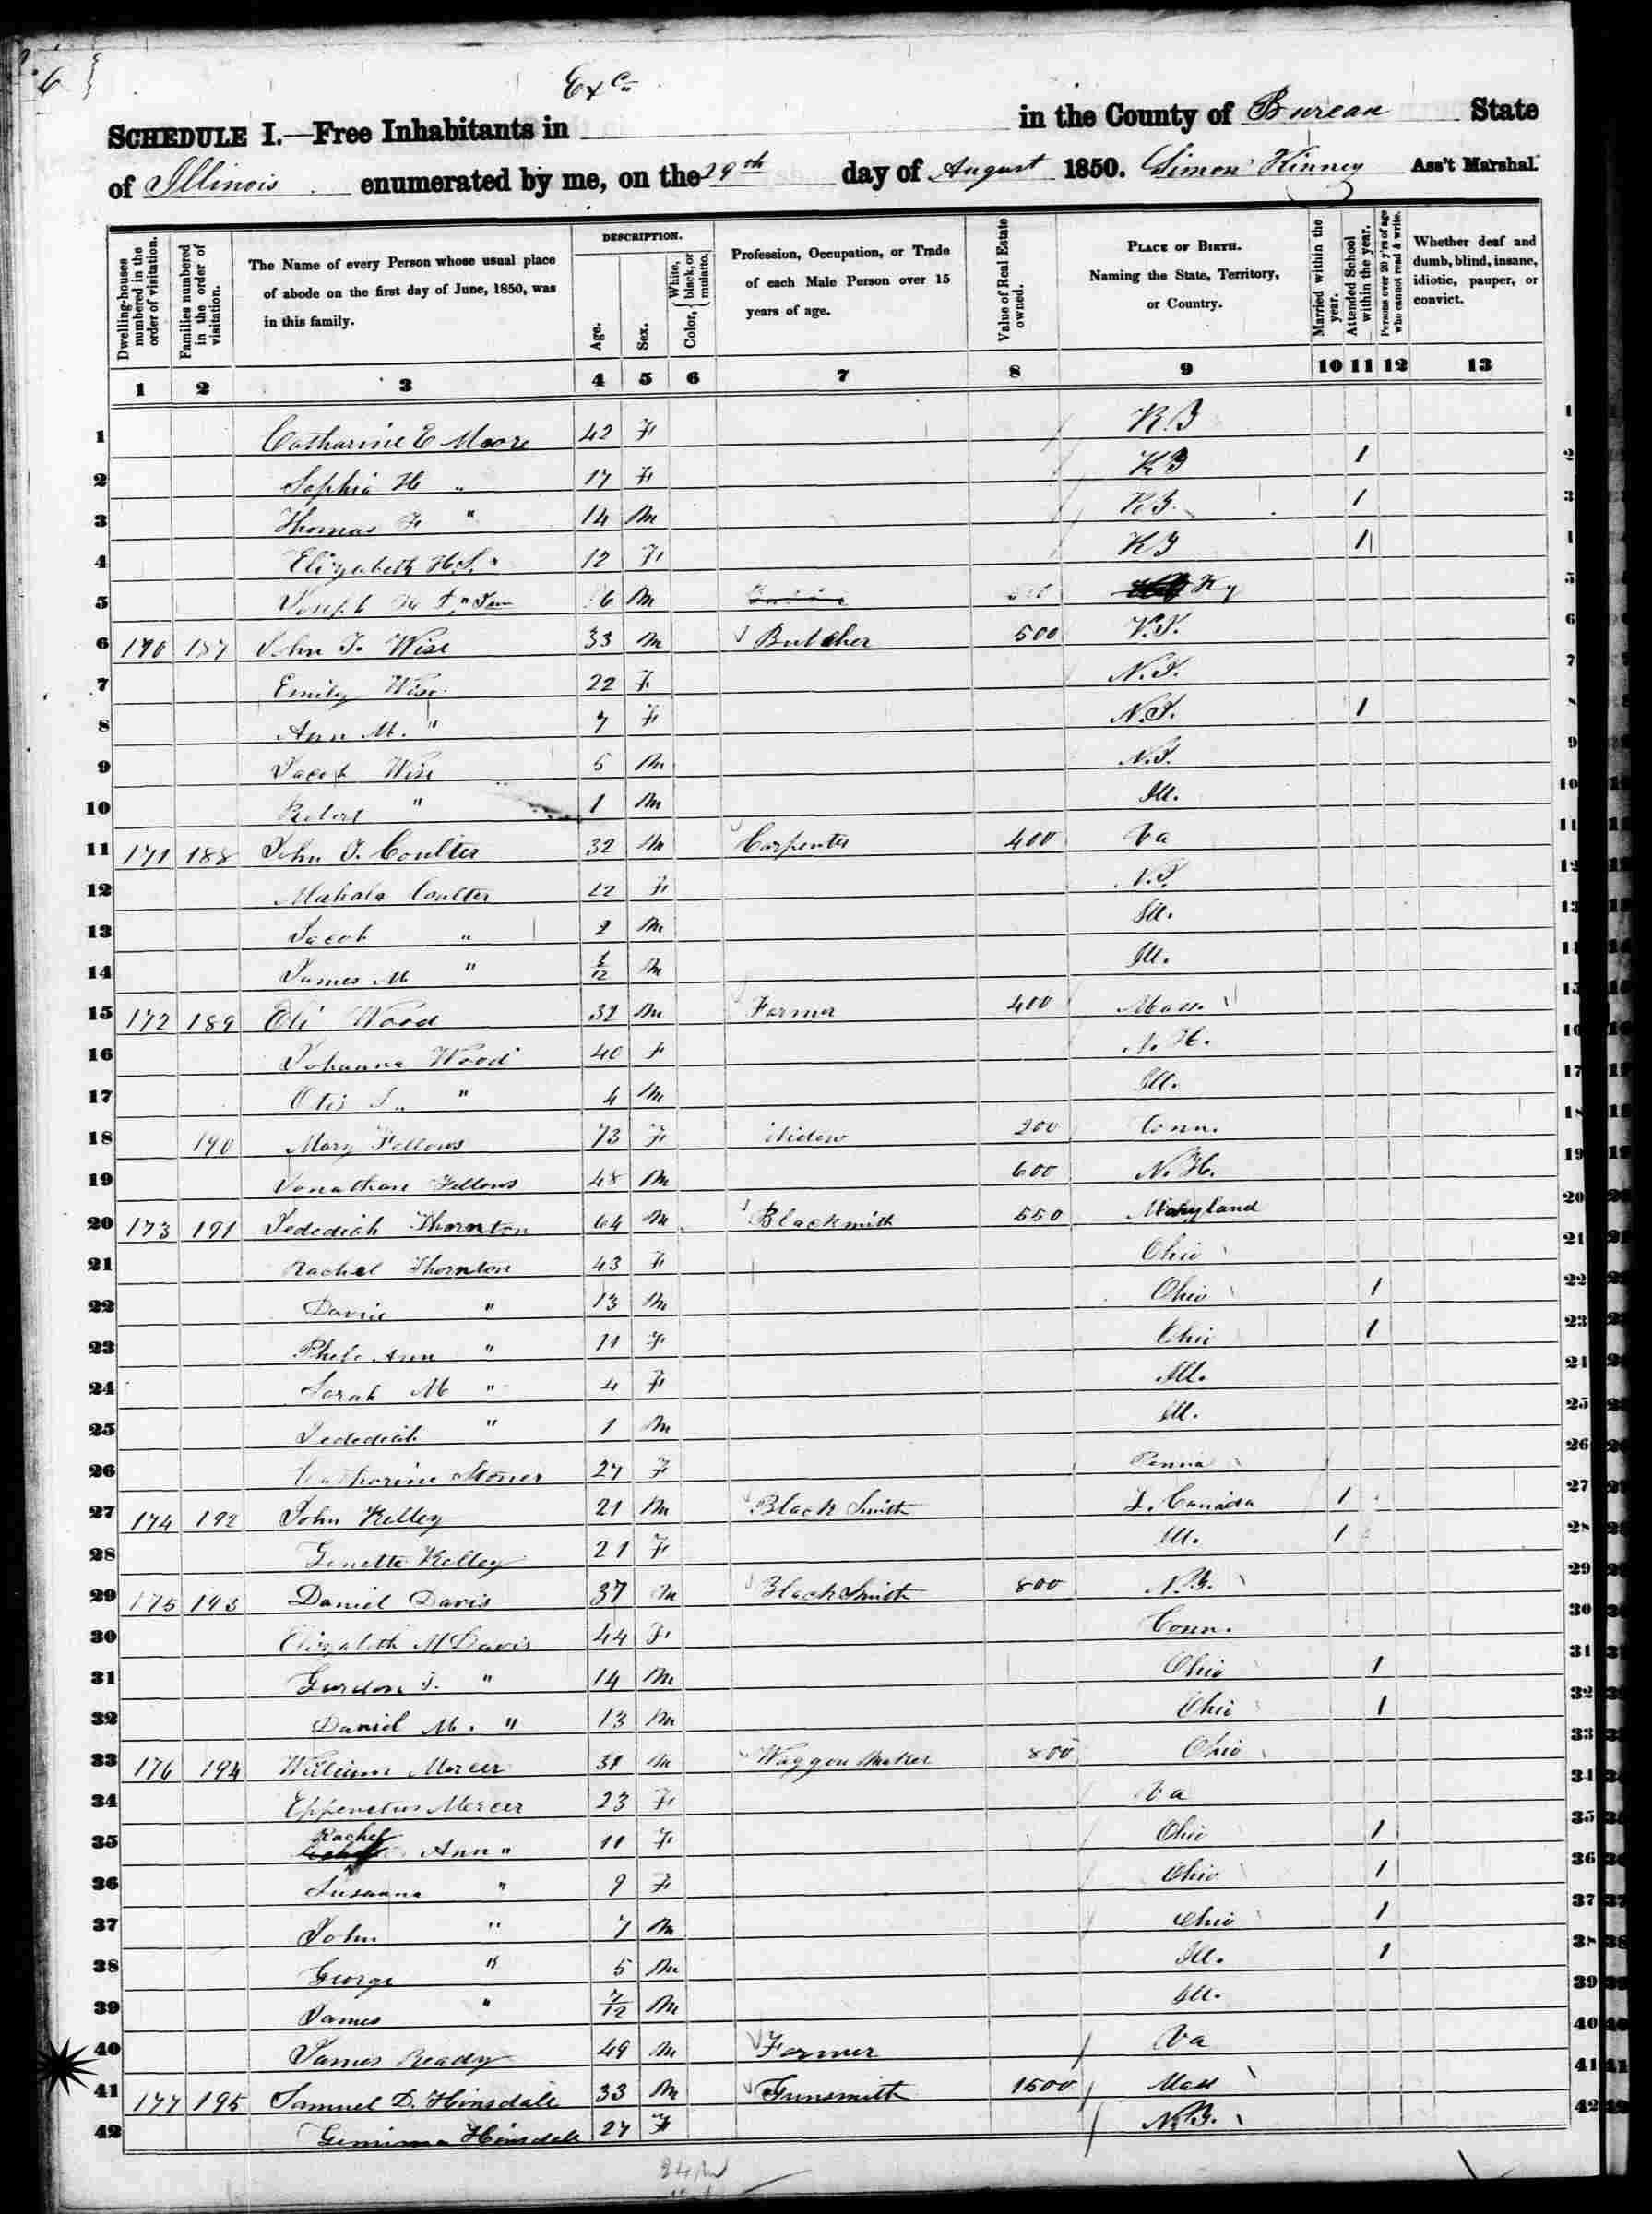 6
Ex c
SCHEDULE I.—Free Inhabitants in in the County of Bureau State
of Illinois enumerated by me, on the 29th day of August 1850. Simon Kinney Ass't Marshal.
Dwelling-houses numbered in the order of visitation.
Families numbered in the order of visitation.
The Name of every Person whose usual place of abode on the first day of June, 1850, was in this family.
DESCRIPTION.
Age.
Sex.
Color, { White, black, or mulatto.
Profession, Occupation, or Trade of each Male Person over 15 years of age.
Value of Real Estate owned.
PLACE OF BIRTH. Naming the State, Territory, or Country.
Married within the year.
Attended School within the year.
Persons over 20 y'rs of age who cannot read & write.
Whether deaf and dumb, blind, insane, idiotic, pauper, or convict.
1 2 3 4 5 6 7 8 9 10 11 12 13
1 Catharine E Moore 42 F KY 1
2 Sophia H " 17 F KY 1 2
3 Thomas F " 14 M KY 1 3
4 Elizabeth H.S. " 12 F KY 1
5 Joseph 6 M Ky 5
6 170 187 John J. Wise 33 M Butcher 500 6
7 Emily Wise 22 F N.J. 7
8 Ann M. " 7 F N.J. 1
9 Jacob Wise 5 M N.J. 9
10 Robert " 1 M Ill. 10
11 171 188 John J. Coulter 32 M Carpenter 400 Va 11
12 Mahala Coulter 22 F N.J. 12
13 Jacob " 2 M Ill. 13
14 James M " /12 M Ill. 14
15 172 189 Eli Wood 32 M Farmer 400 Mass. 15
16 Johanna Wood 40 F N.H. 16
17 Otis S. " 4 M Ill. 17
18 190 Mary Fellows 73 F Widow 200 Conn. 18
19 Jonathan Fellows 48 M 600 N.H. 19
20 173 191 Jedediah Thornton 64 M Blacksmith 550 Maryland 20
21 Rachel Thornton 43 F Ohio 21
22 David " 13 M Ohio 1 22
23 Phebe Ann " 11 F Ohio 1 23
24 Sarah M " 4 F Ill. 24
25 Jedediah " 1 M Ill. 25
26 Catharine Stoner 27 F Penna 26
27 174 192 John Kelley 21 M Black Smith L. Canada 1 27
28 Genette Kelley 21 F Ill. 1 28
29 175 193 Daniel Davis 37 M Black Smith 800 N.Y. 29
30 Elizabeth M Davis 44 F Conn. 30
31 Gurdon J. " 14 M Ohio 1 31
32 Daniel M. " 13 M Ohio 1 32
33 176 194 William Mercer 31 M Waggon Maker 800 Ohio 33
34 Eppenetus Mercer 23 F Va 34
35 Rachel Ann " 11 F Ohio 1 35
36 Susanna " 9 F Ohio 1 36
37 John " 7 M Ohio 1 37
38 George " 5 M Ill. 1 38
39 James " 7/12 M Ill. 39
40 James Ready 49 M Farmer Va 40
41 177 195 Samuel D. Hinsdale 33 M Gunsmith 1500 Mass 41
42 Gemima Hinsdale 27 F N.Y. 42